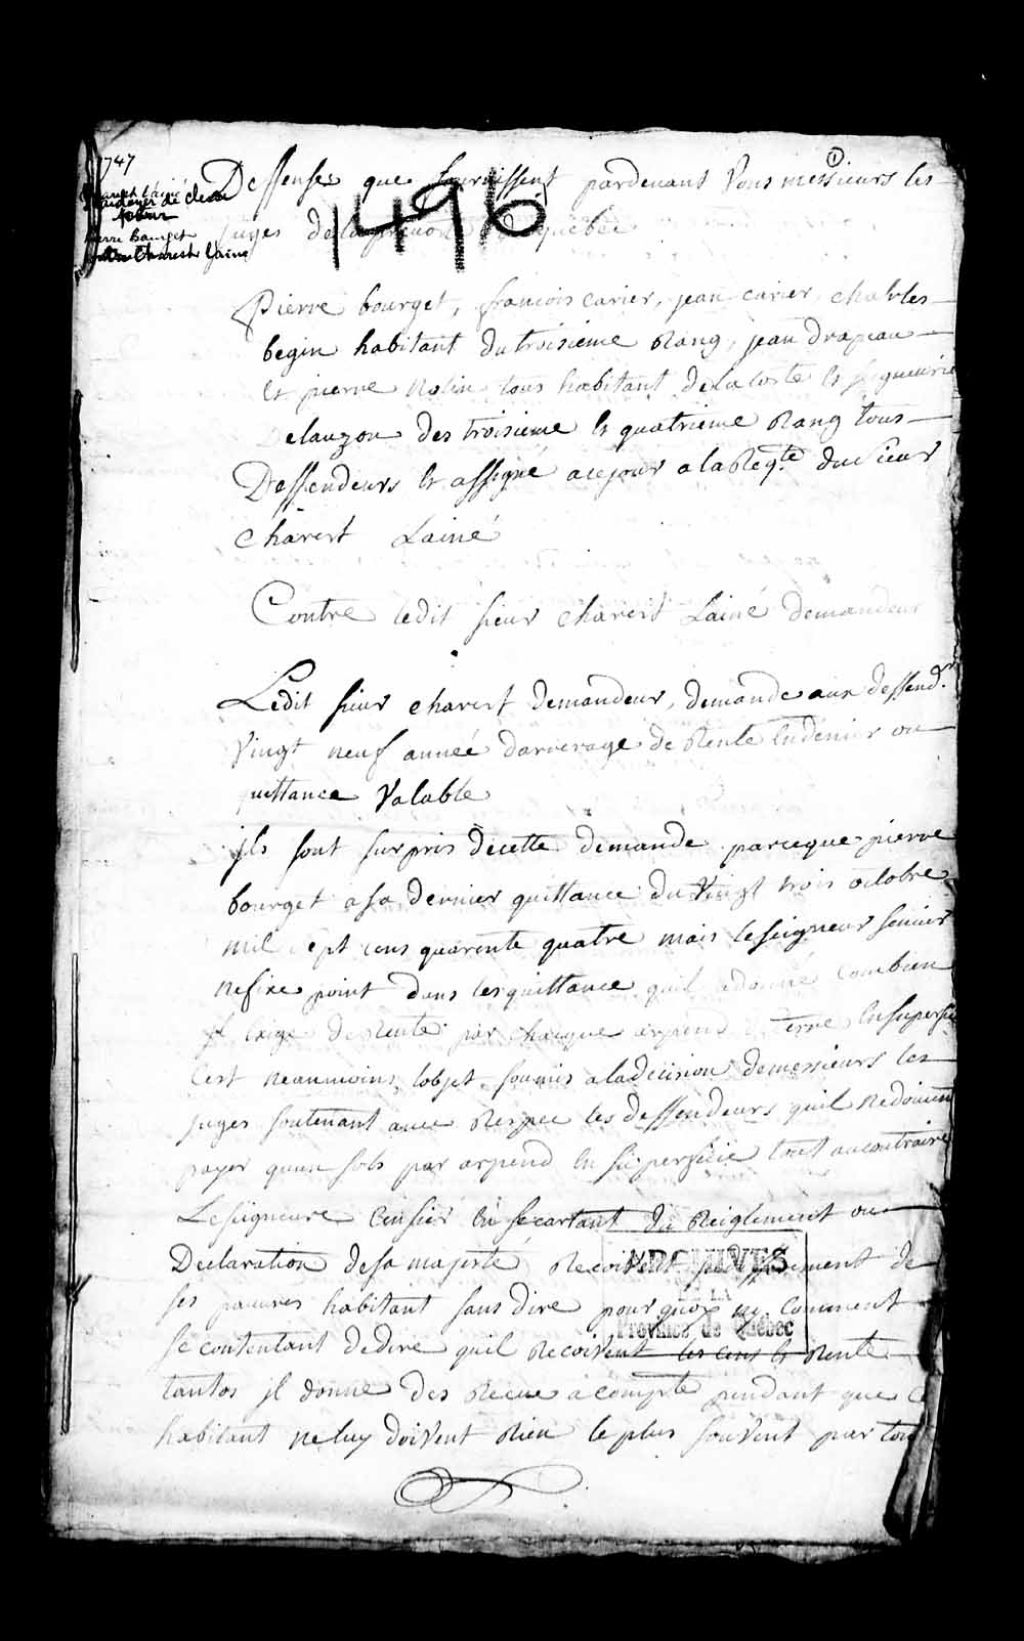 1747
①
Deffenses que fournissent pardevant Vous messieurs les
juges de la prevoté de quebec
1496
Pierre bourget, francois carier, jean carier, charles
begin habitant du troisieme Rang, jean drapeau
et pierre Nolin tous habitant de la coste et seigneurie
Delauzon des troisieme et quatrieme Rang tous
Deffendeurs et assigné a ce jour a la Reqte du sieur
Charest Lainé
Contre ledit sieur Charest Lainé demandeur
Ledit sieur charest demandeur, demande aux deffendrs
Vingt neuf anneé darrerage de Rente en denier ou
quittance Valable
jls sont surpris de cette demande parceque pierre
bourget a sa dernier quittance du Vingt trois octobre
mil sept cens quarente quatre mais le seigneur
ne fixe point dans les quittance quil a donné combien
jl exige de rente par chaque arpent terre en superficie
Cest neanmoins lobjet soumis a la decision de messieurs les
juges soutenant avec Respec les deffendeurs quil ne doivent
payer quun sols par arpend en superficie tout au contraire
Le seigneure Censier en secartant du Reiglement ou
Declaration de sa majesté Recoivent de
ses pauvres habitant sans dire pourquoy ny comment
se contentant de dire quil Recoivent les cens et Rente
tantos jl donne des Recue a compte pendant que
habitant ne luy doivent Rien le plus souvent par tou
ARCHIVES
DE LA
Province de Québec